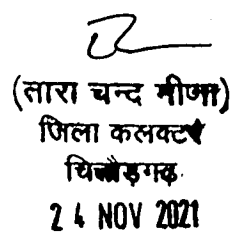 (तारा चन्द मीणा)
जिला कलक्टर
चित्तौड़गढ़
24 NOV 2021